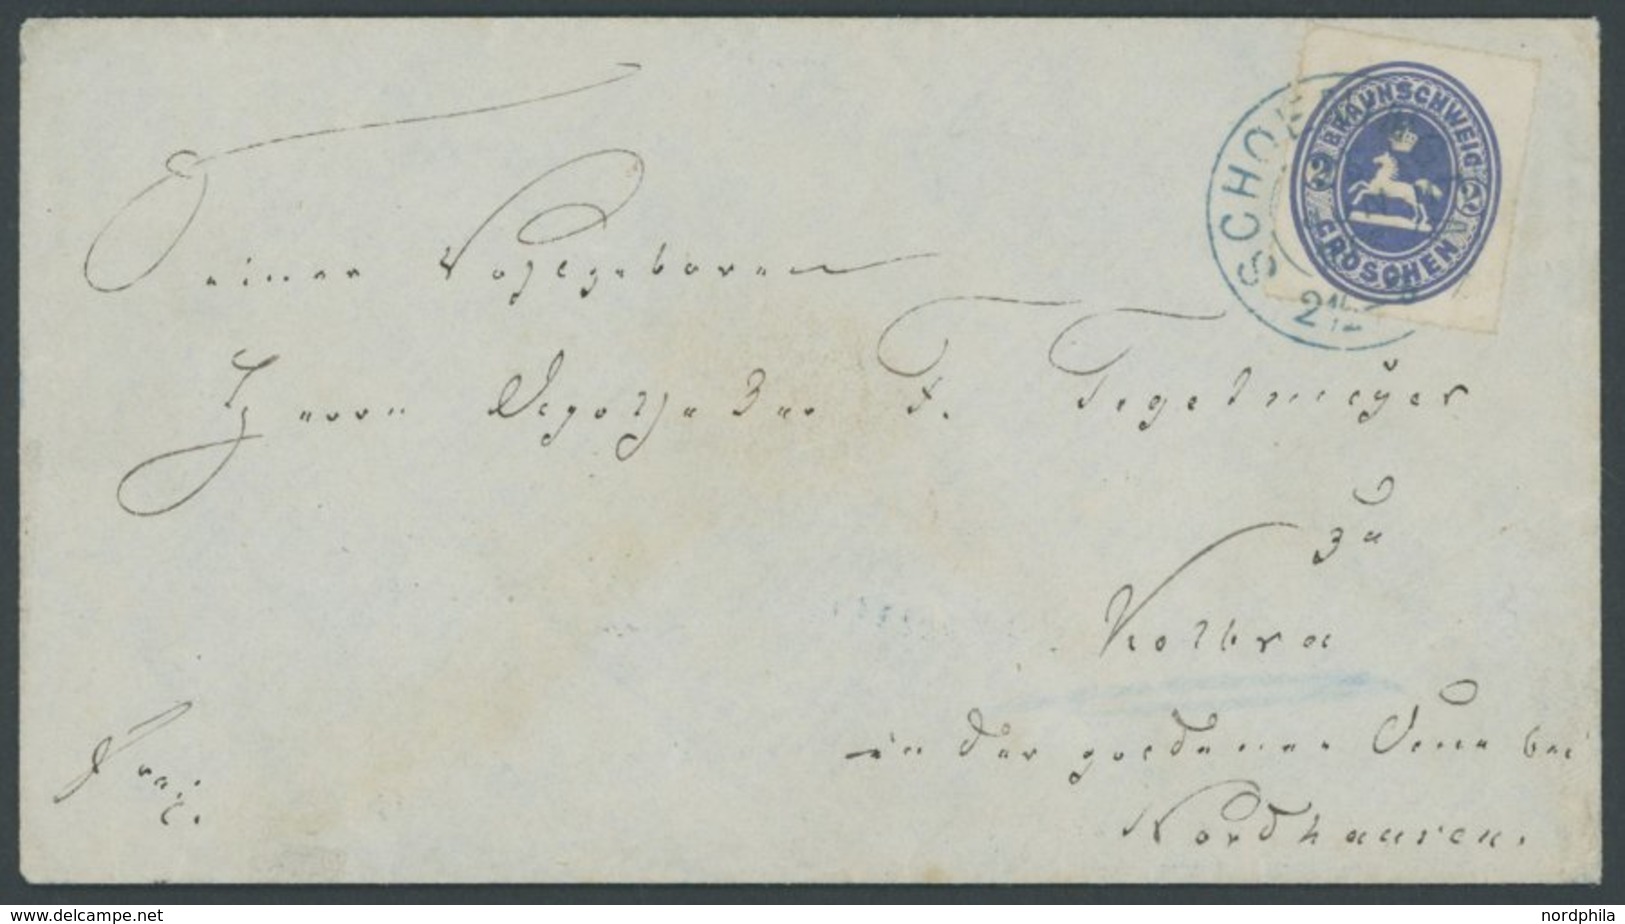 BRAUNSCHWEIG
2 2
GROSCHEN
SCHO
Seiner Wohlgeboren
Herrn F. Tegetmeyer
zu
Kelbra
in der goldenen Aue bei
Nordhausen.
Frei.
www.delcampe.net
nordphila